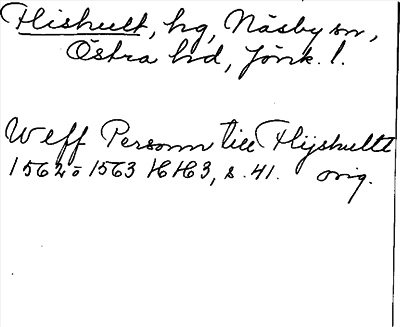 Flishult, hg, Näsby sn,
Östra hd, Jönk. l.
Weff Personn till Flijshultt
1562 o 1563 HH3, s. 41. orig.